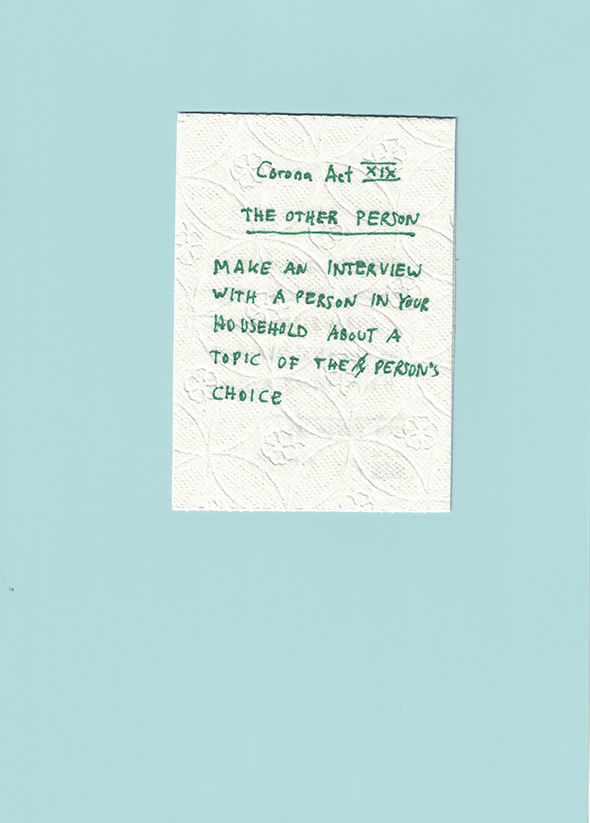 Corona Act XIX
THE OTHER PERSON
MAKE AN INTERVIEW
WITH A PERSON IN YOUR
HOUSEHOLD ABOUT A
TOPIC OF THE PERSON'S
CHOICE